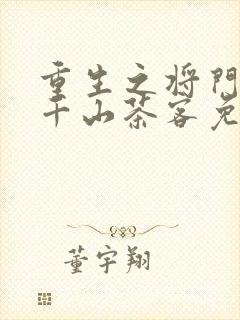 重生之将门
千山茶客免
董宇翔